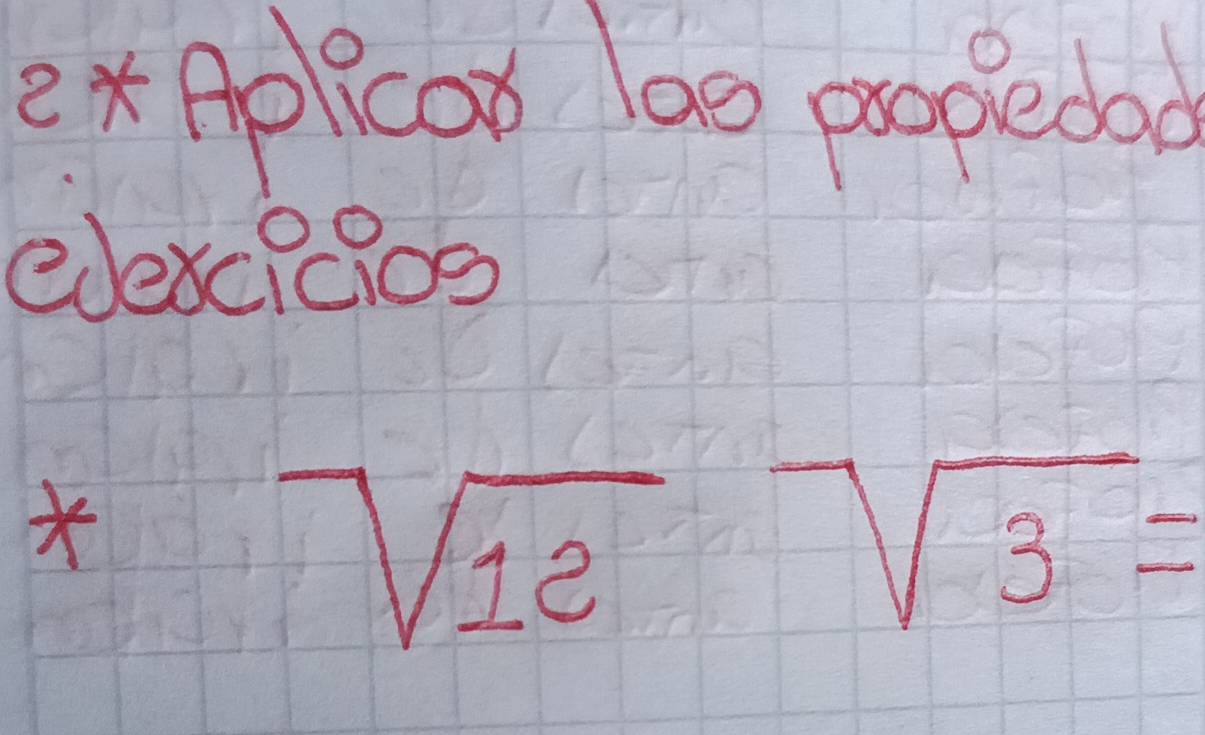 2* Aplicar las propiedad
ejercicios
* √12 √3 =